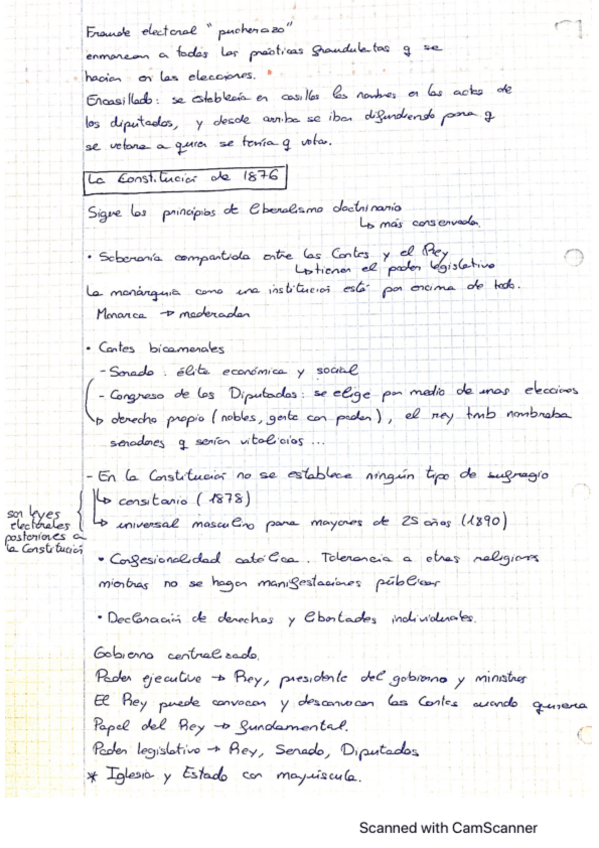 Fraude electoral "pucherazo"
enmarcan a todas las prácticas fraudulentas q se
hacían en las elecciones.
Encasillado: se establecía en casillas los nombres en las actas de
los diputados, y desde arriba se iban difundiendo para q
se votara a quien se tenía q votar.
La Constitución de 1876
Sigue los principios de liberalismo doctrinario
↳ más conservador.
• Soberanía compartida entre las Cortes y el Rey
↳ tienen el poder legislativo
La monarquía como una institución está por encima de todo.
Monarca → moderador
• Cortes bicamerales
- Senado: élite económica y social
- Congreso de los Diputados: se elige por medio de unas elecciones
↳ derecho propio (nobles, gente con poder), el rey tmb nombraba
senadores q serían vitalicios ...
- En la Constitución no se establece ningún tipo de sufragio
↳ censitario (1878)
↳ universal masculino para mayores de 25 años (1890)
son leyes
electorales
posteriores a
la Constitución
• Confesionalidad católica. Tolerancia a otras religiones
mientras no se hagan manifestaciones públicas
• Declaración de derechos y libertades individuales.
Gobierno centralizado.
Poder ejecutivo → Rey, presidente del gobierno y ministros
El Rey puede convocar y desconvocar las Cortes cuando quisiera
Papel del Rey → fundamental.
Poder legislativo → Rey, Senado, Diputados
* Iglesia y Estado con mayúscula.
Scanned with CamScanner